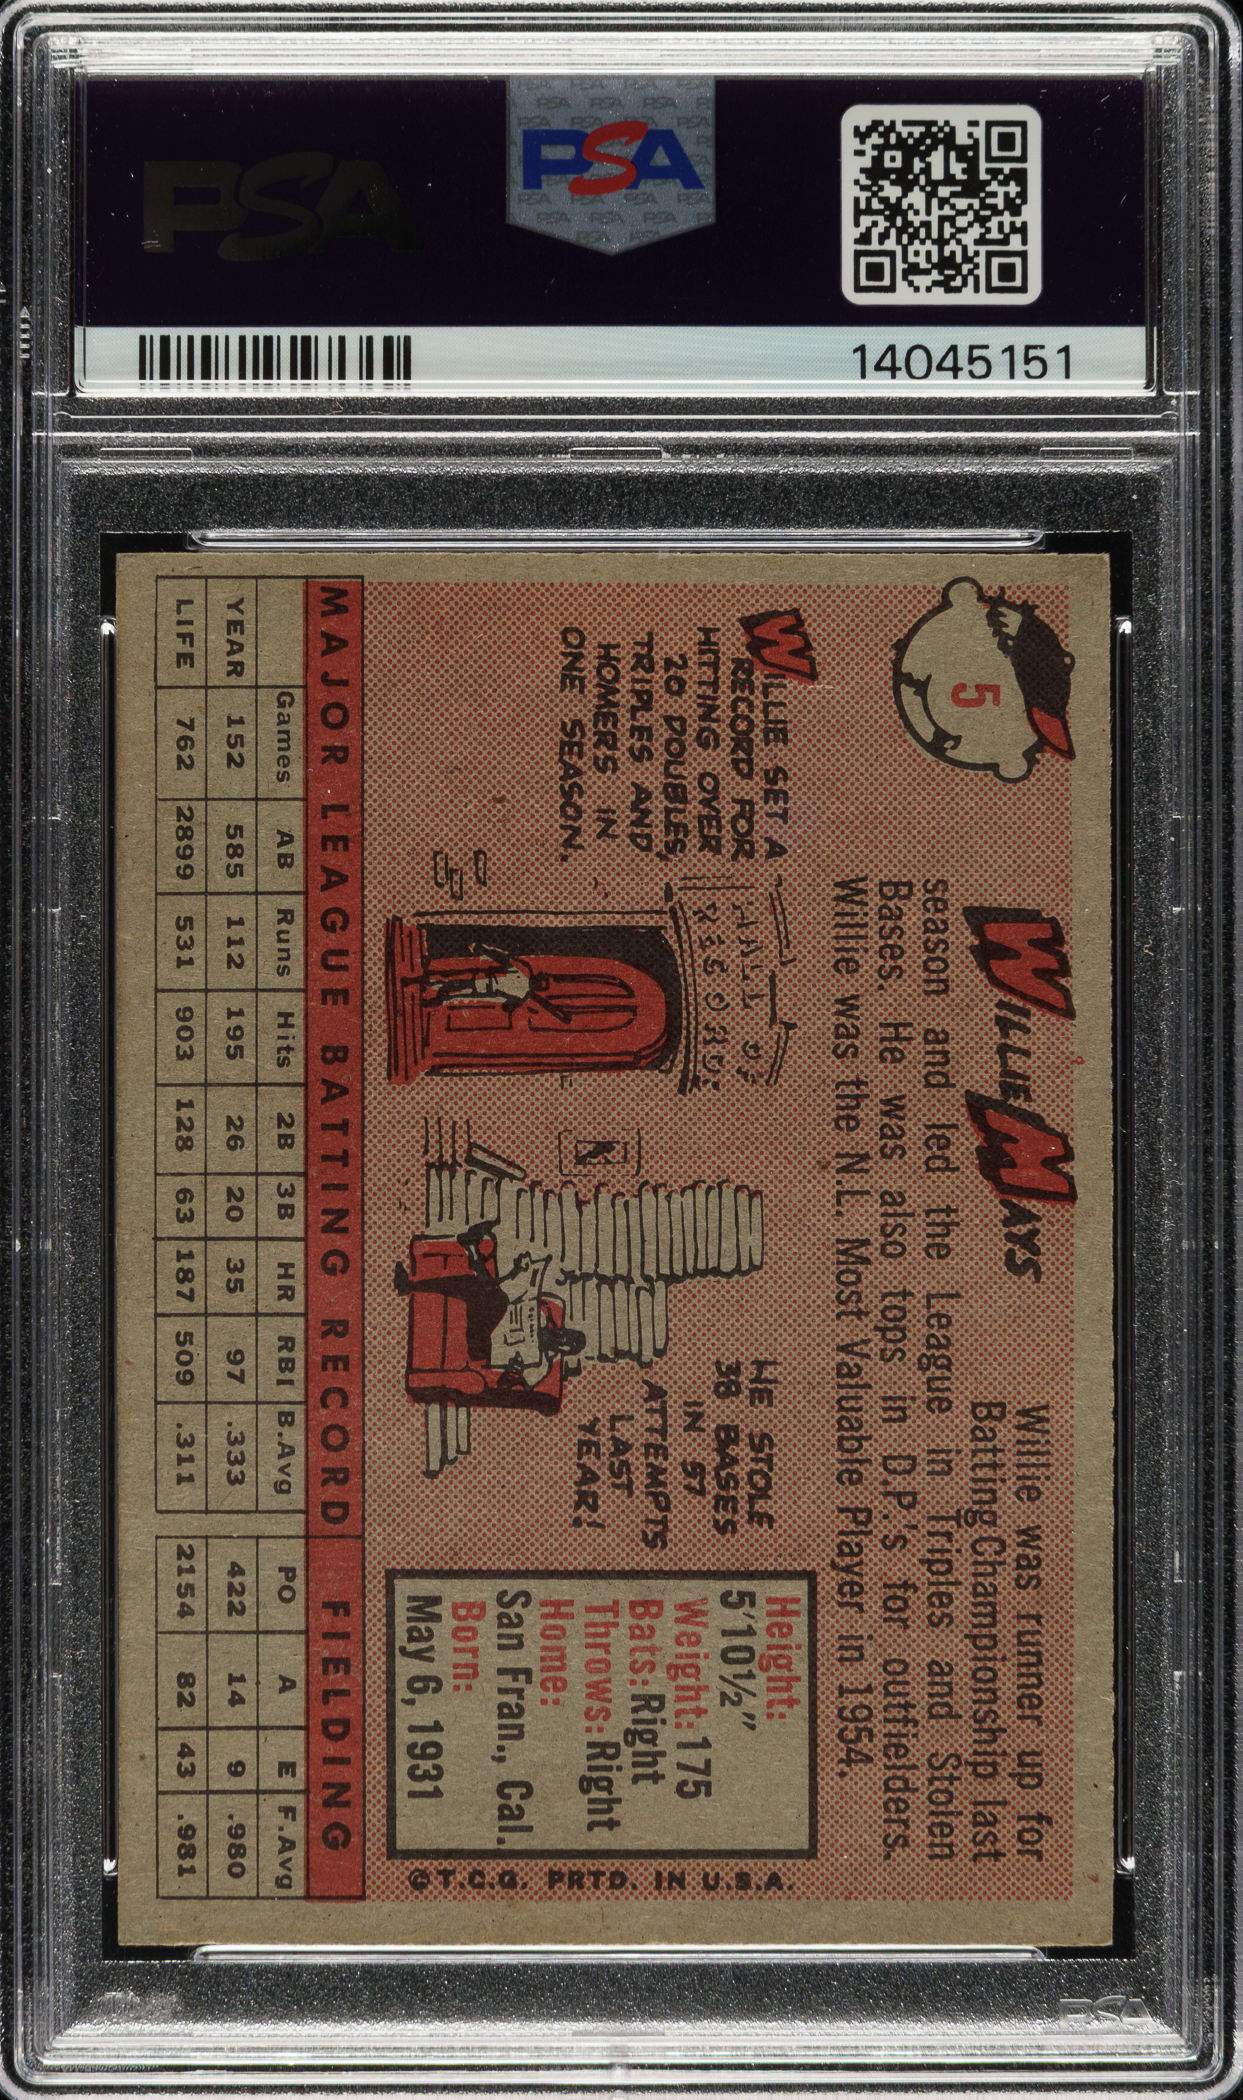 PSA
PSA
14045151
5
WILLIE MAYS
Willie was runner up for
Batting Championship last
season and led the League in Triples and Stolen
Bases. He was also tops in D.P.'s for outfielders.
Willie was the N.L. Most Valuable Player in 1954.
WILLIE SET A
RECORD FOR
HITTING OVER
20 DOUBLES,
TRIPLES AND
HOMERS IN
ONE SEASON.
HALL OF
RECORDS
HE STOLE
38 BASES
IN 57
ATTEMPTS
LAST
YEAR!
Height:
5'10½"
Weight: 175
Bats: Right
Throws: Right
Home:
San Fran., Cal.
Born:
May 6, 1931
© T.C.G. PRTD. IN U.S.A.
MAJOR LEAGUE BATTING RECORD FIELDING
Games AB Runs Hits 2B 3B HR RBI B.Avg PO A E F.Avg
YEAR 152 585 112 195 26 20 35 97 .333 422 14 9 .980
LIFE 762 2899 531 903 128 63 187 509 .311 2154 82 43 .981
PSA